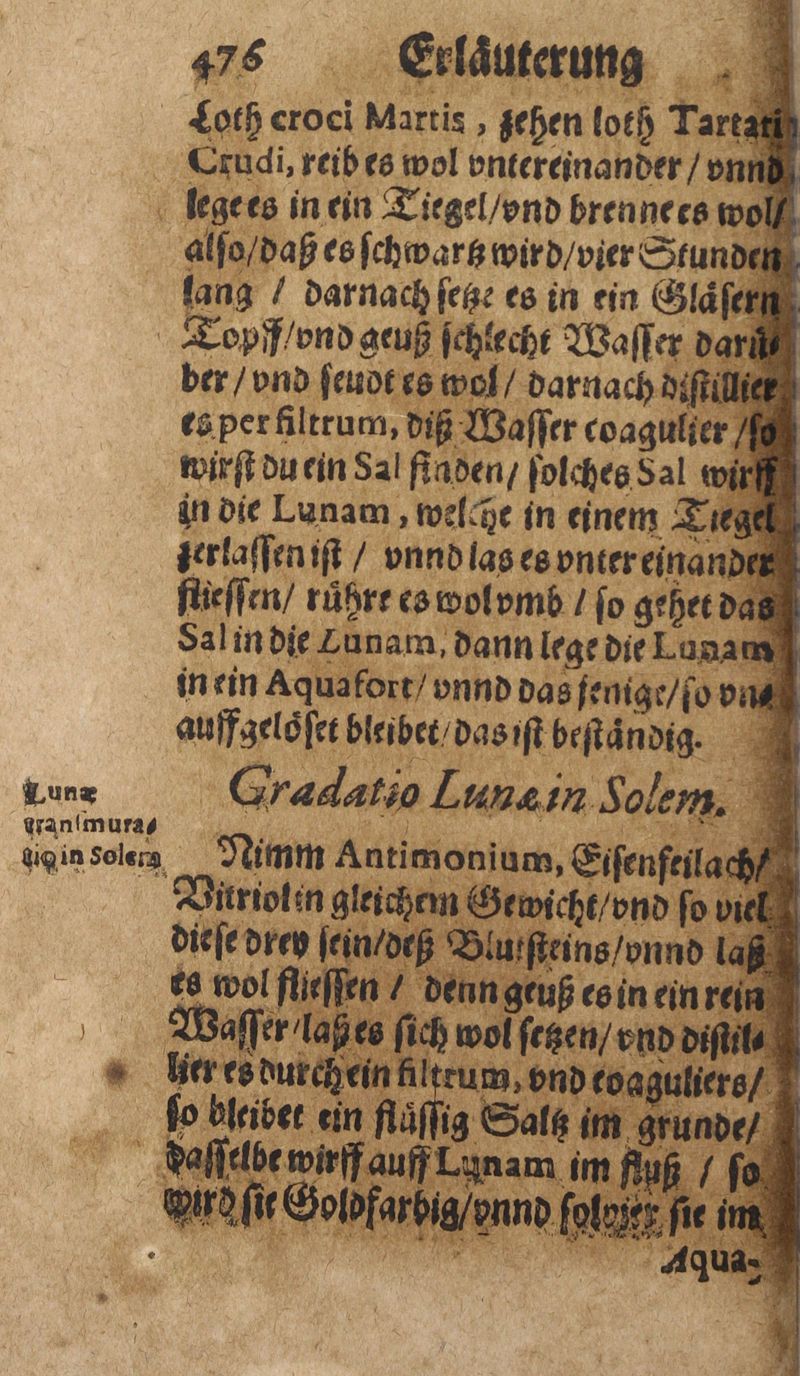 476 Erläuterung
Loth croci Martis, zehen loth Tartari
Crudi, reib es wol vntereinander / vnnd
lege es in ein Tiegel/vnd brenne es wol/
also/daß es schwartz wird/vier Stunden
lang / darnach setze es in ein Gläsern
Topff/vnd geuß schlecht Wasser darü-
ber/vnd seudt es wol/ darnach distillier
es per filtrum, diß Wasser coagulier /so
wirst du ein Sal finden/ solches Sal wirff
in die Lunam, welche in einem Tiegel
zerlassen ist / vnnd las es vntereinander
fliessen/ rühre es wol vmb / so gehet das
Sal in die Lunam, dann lege die Lunam
in ein Aquafort/ vnnd das jenige/so vn-
auffgelöset bleibet/das ist beständig.
Lunæ
tranſmuta-
tio in Solem
Gradatio Lunæ in Solem.
Nimm Antimonium, Eisenfeilach/
Vitriol in gleichem Gewicht/vnd so viel
diese drey sein/deß Blutsteins/vnnd laß
es wol fliessen / denn geuß es in ein rein
Wasser/laß es sich wol setzen/vnd distil-
lier es durch ein filtrum, vnd coaguliers/
so bleibet ein flüssig Saltz im grunde/
dasselbe wirff auff Lunam im fluß / so
wird sie Goldfarbig/vnnd solvier sie im
Aqua-